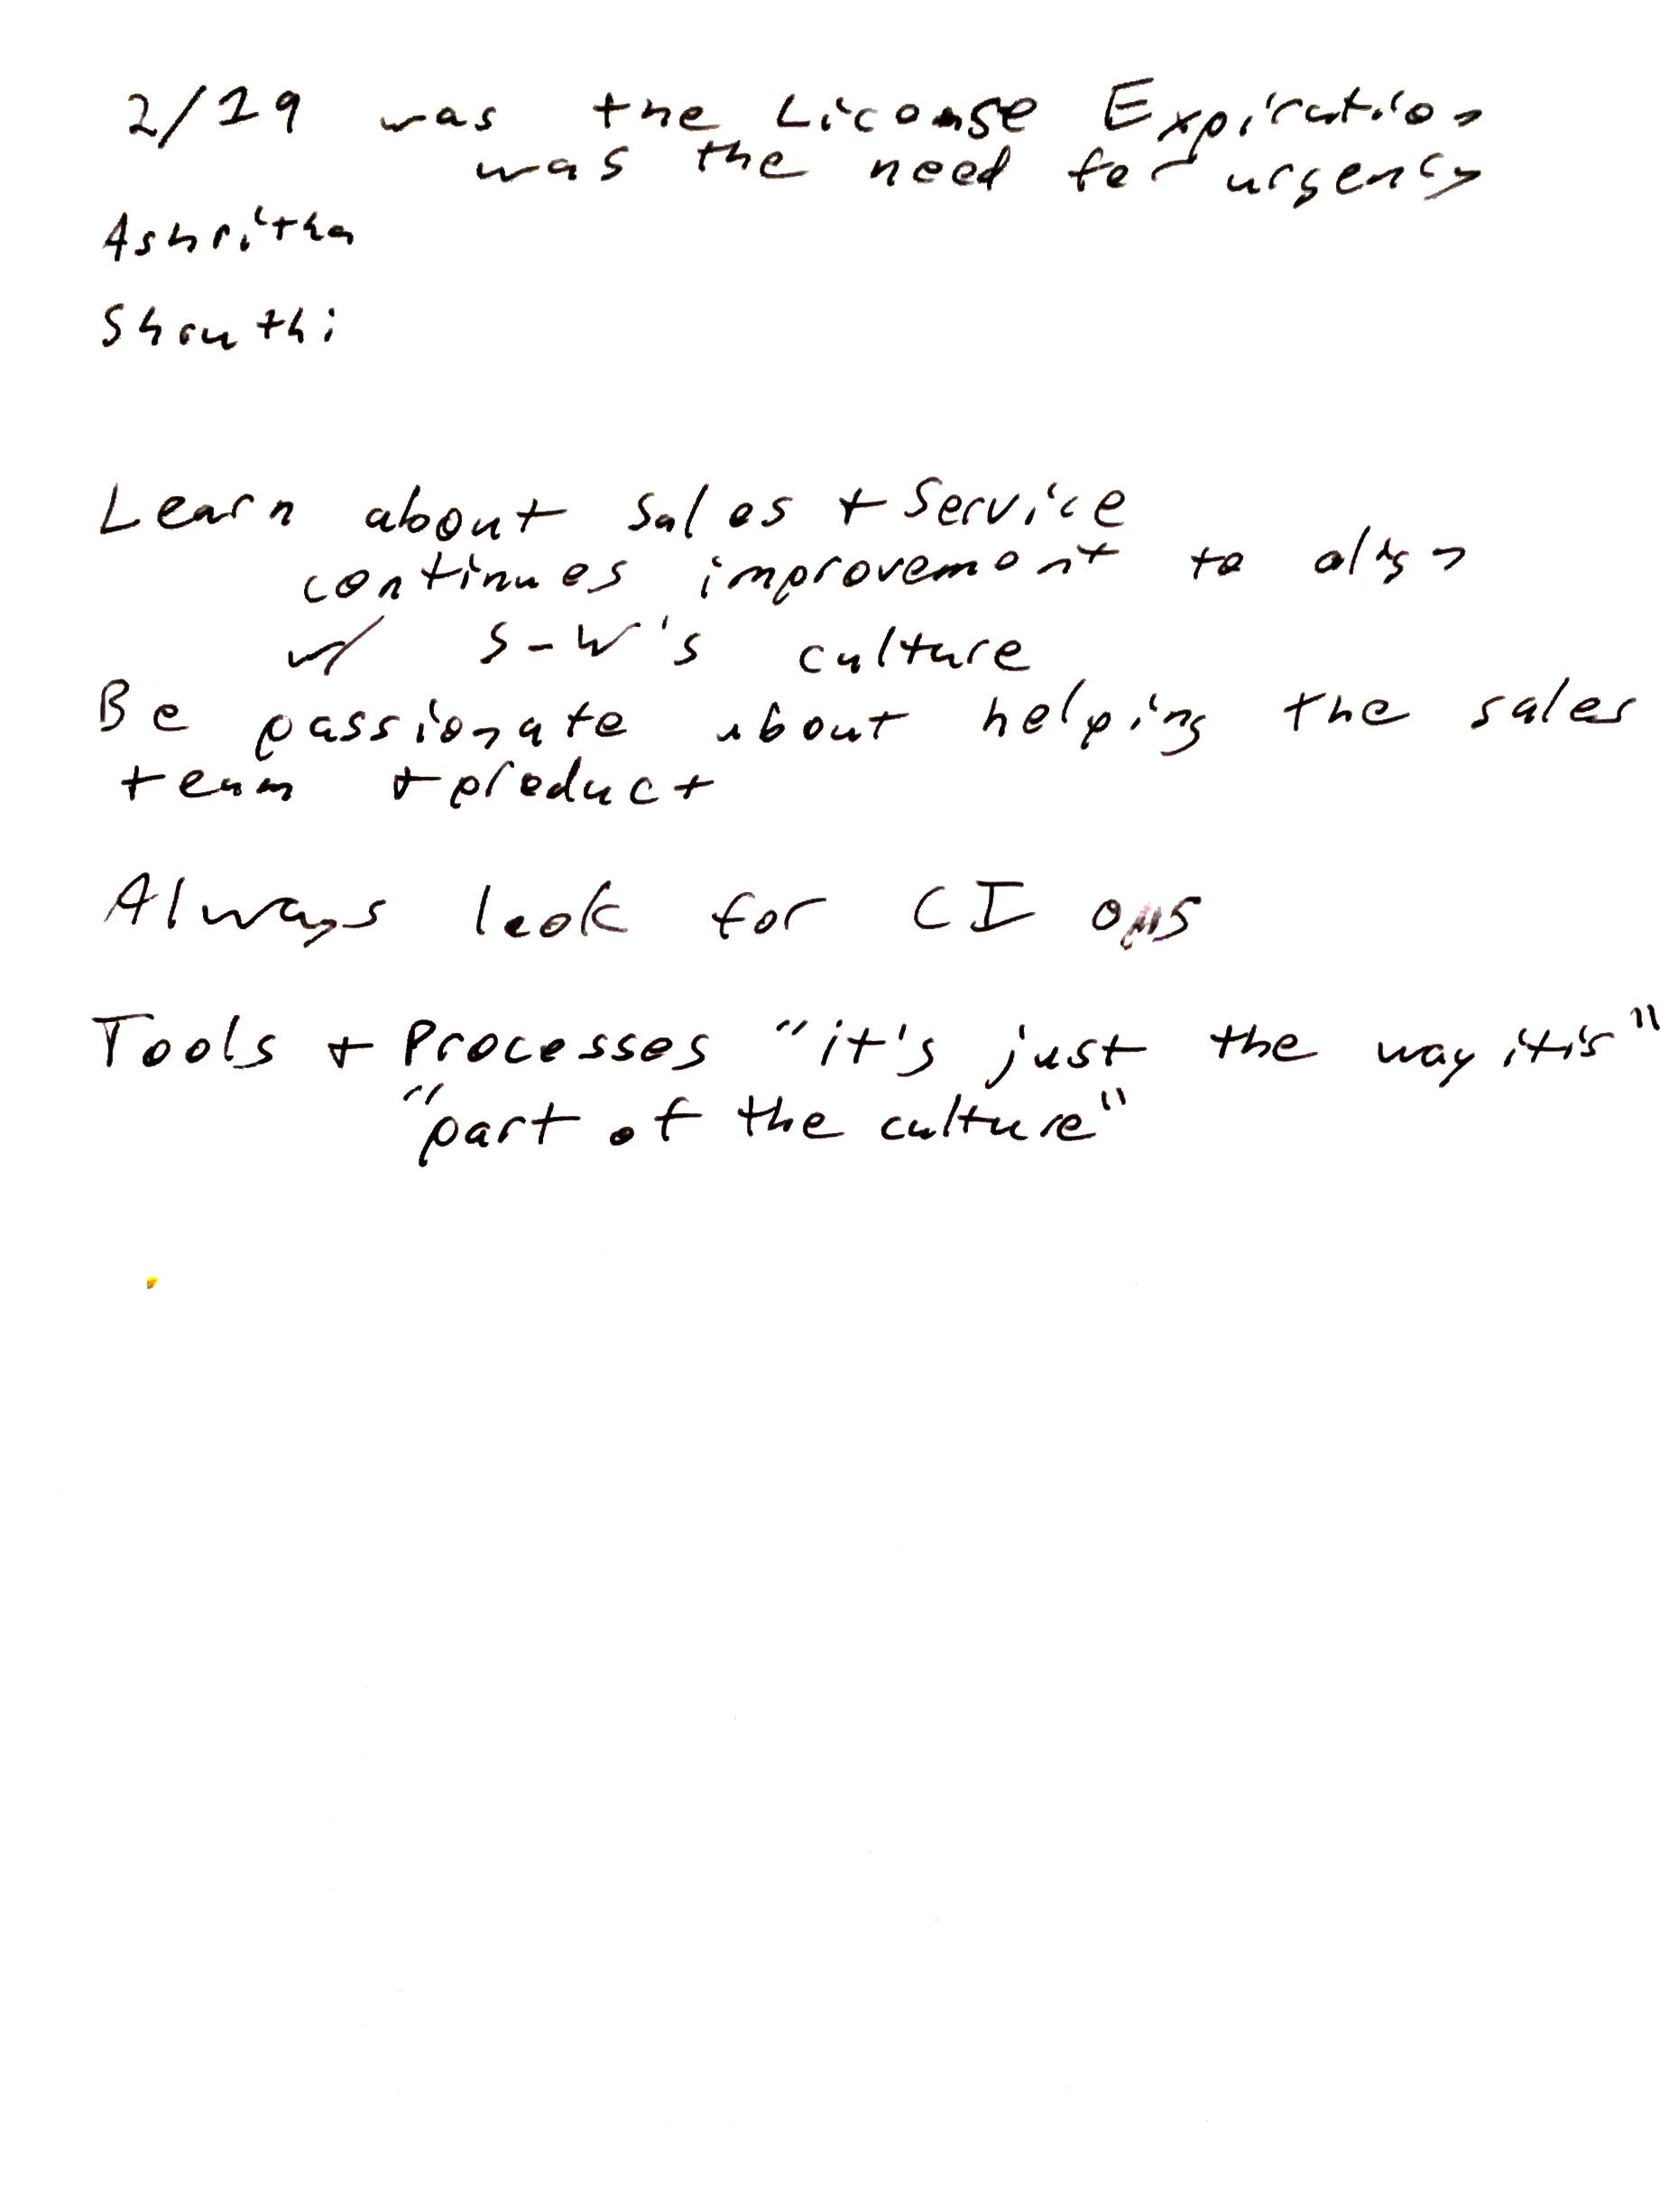 2/29 was the License Expiration
was the need for urgency
Ashritha
Shruthi
Learn about Sales + Service
continues improvement to align
w/ S-W's culture
Be passionate about helping the sales
team + product
Always look for CI
Tools + Processes "it's just the way it is"
"part of the culture"